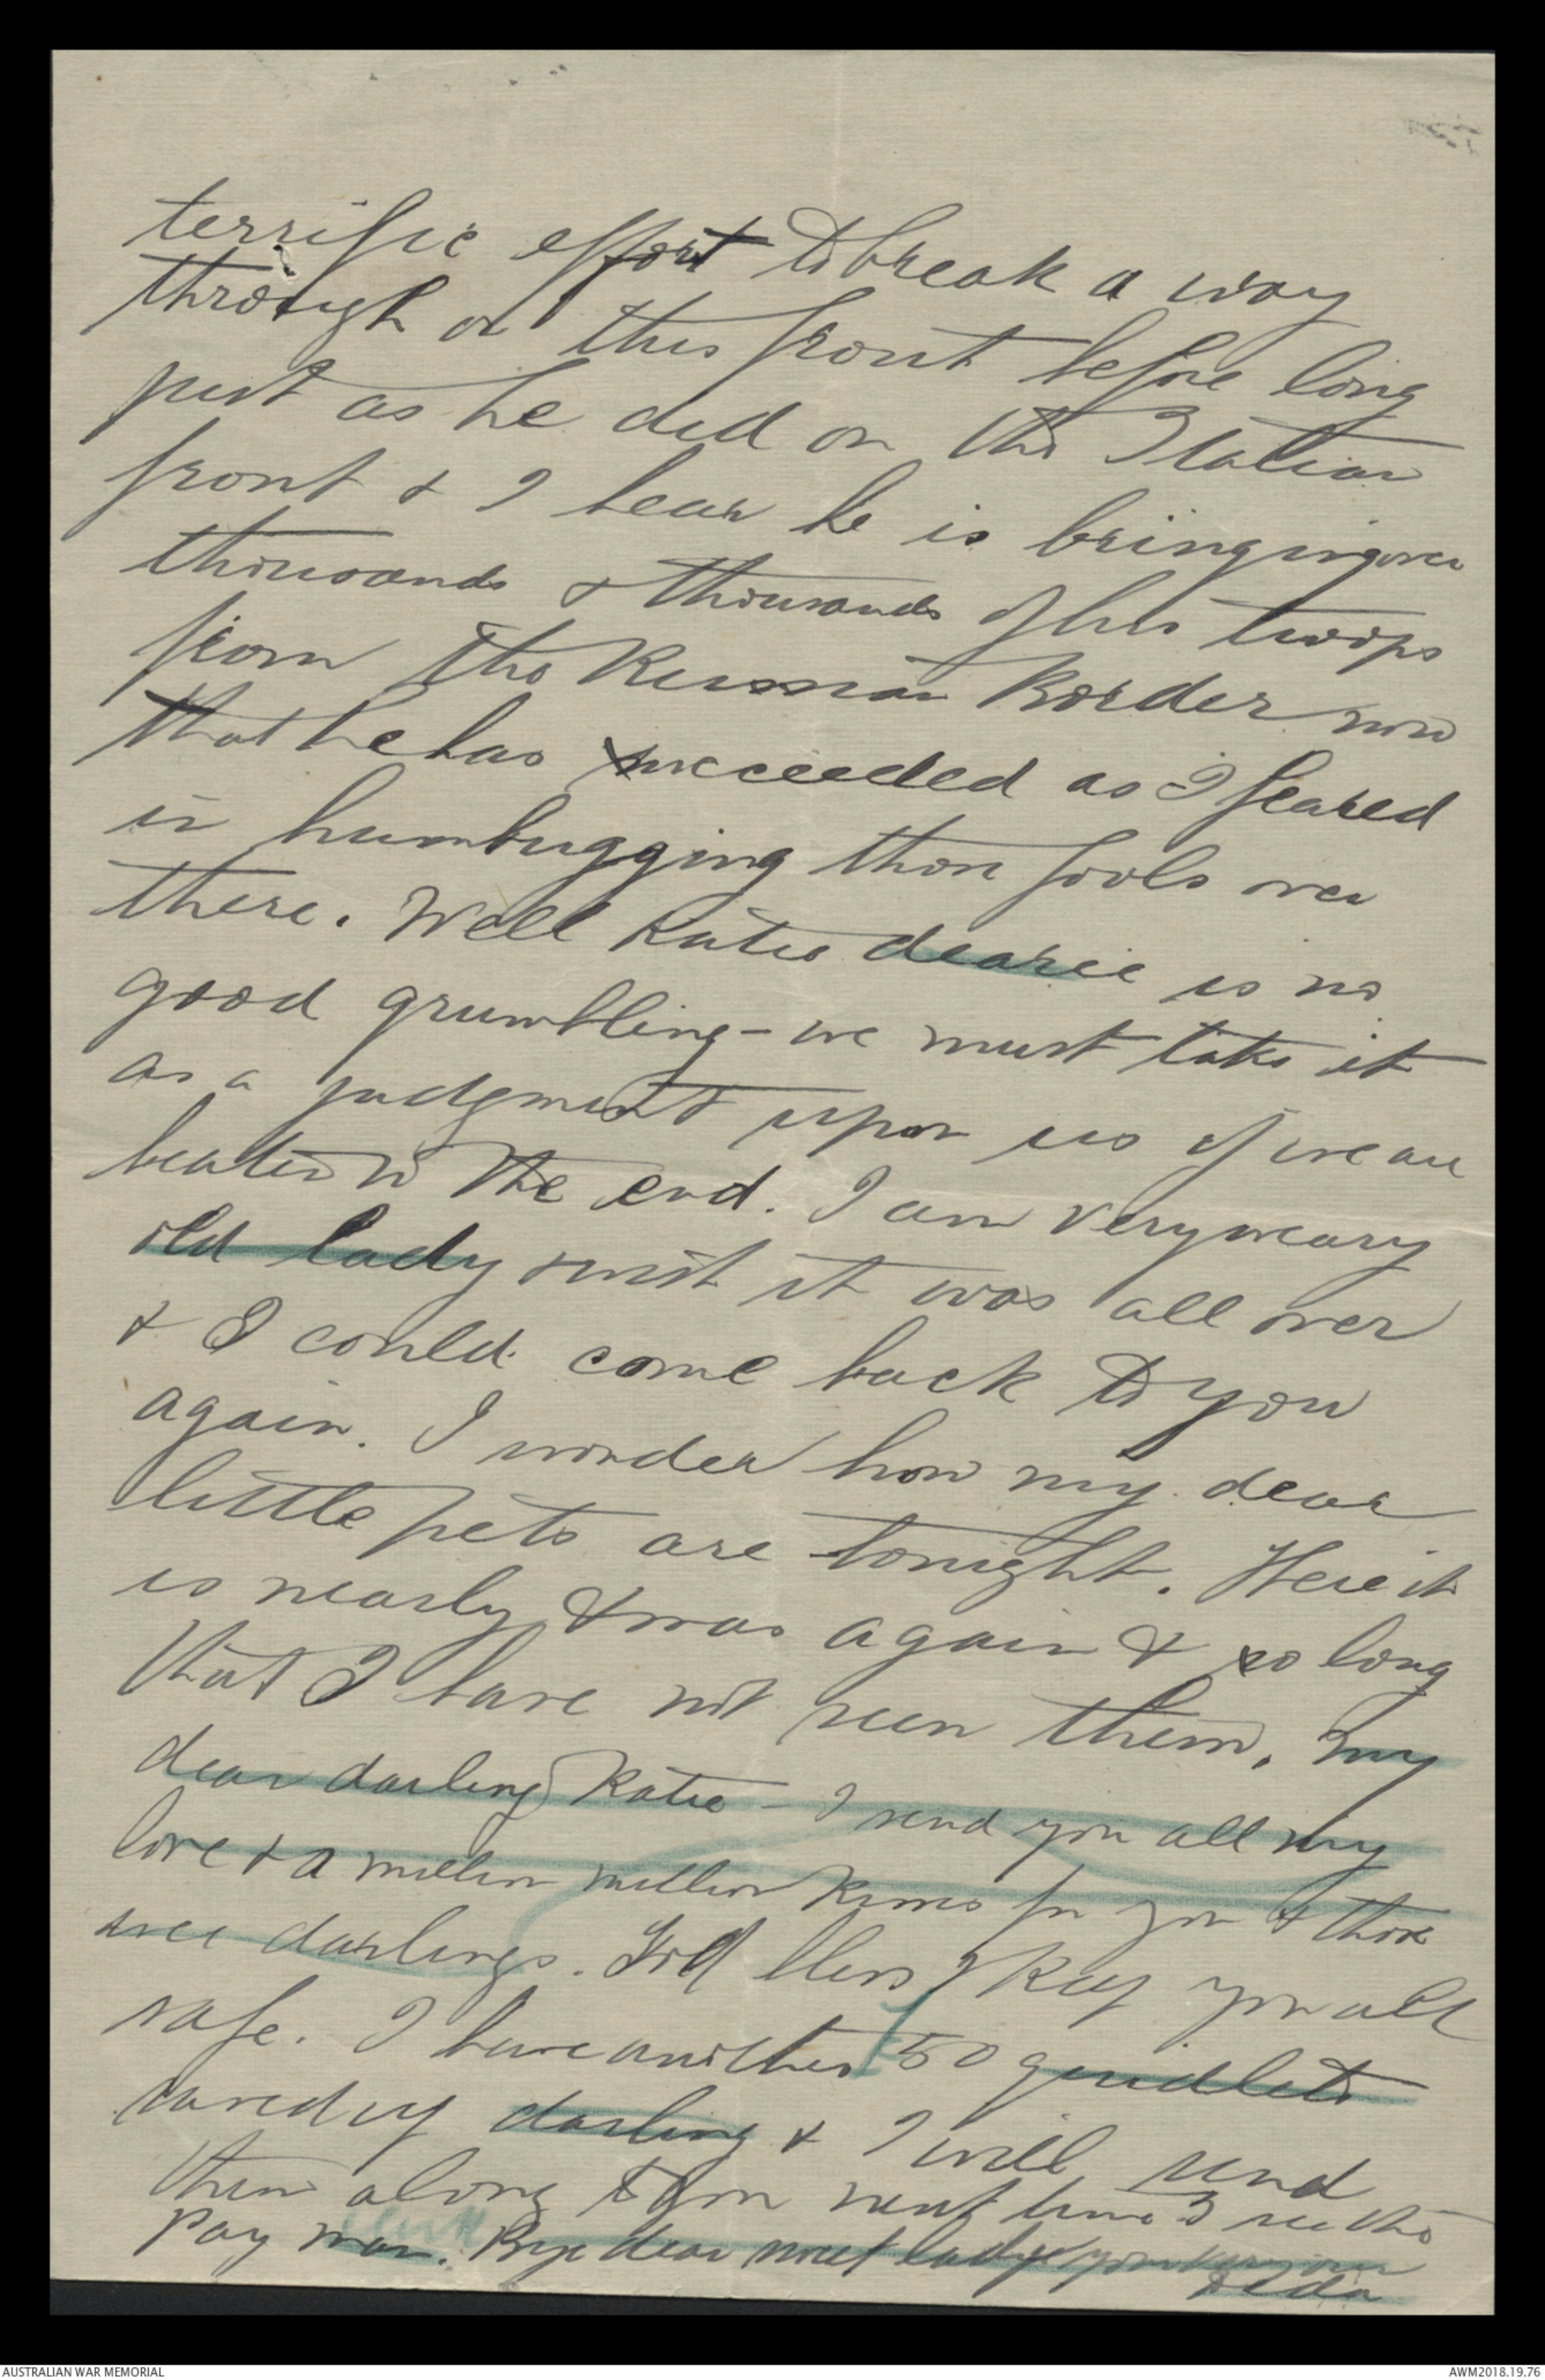 terrific effort to break a way
through on this front before long
just as he did on the Italian
front & I hear he is bringing over
thousands & thousands of his troops
from the Russian Border now
that he has succeeded as I feared
in humbugging those fools over
there. Well Katie dearie is no
good grumbling - we must take it
as a judgment upon us if we are
beaten in the end. I am very weary
old lady & wish it was all over
& I could come back to you
again. I wonder how my dear
little pets are tonight. Here it
is nearly Xmas again & so long
that I have not seen them. My
dear darling Katie - I send you all my
love & a million million kisses for you & those
wee darlings. God bless & keep you all
safe. I have another 50 quidlets
saved up darling & I will send
them along to you next time I see the
Pay man. Bye dear sweet lady your very own
Alda
AUSTRALIAN WAR MEMORIAL
AWM2018.19.76